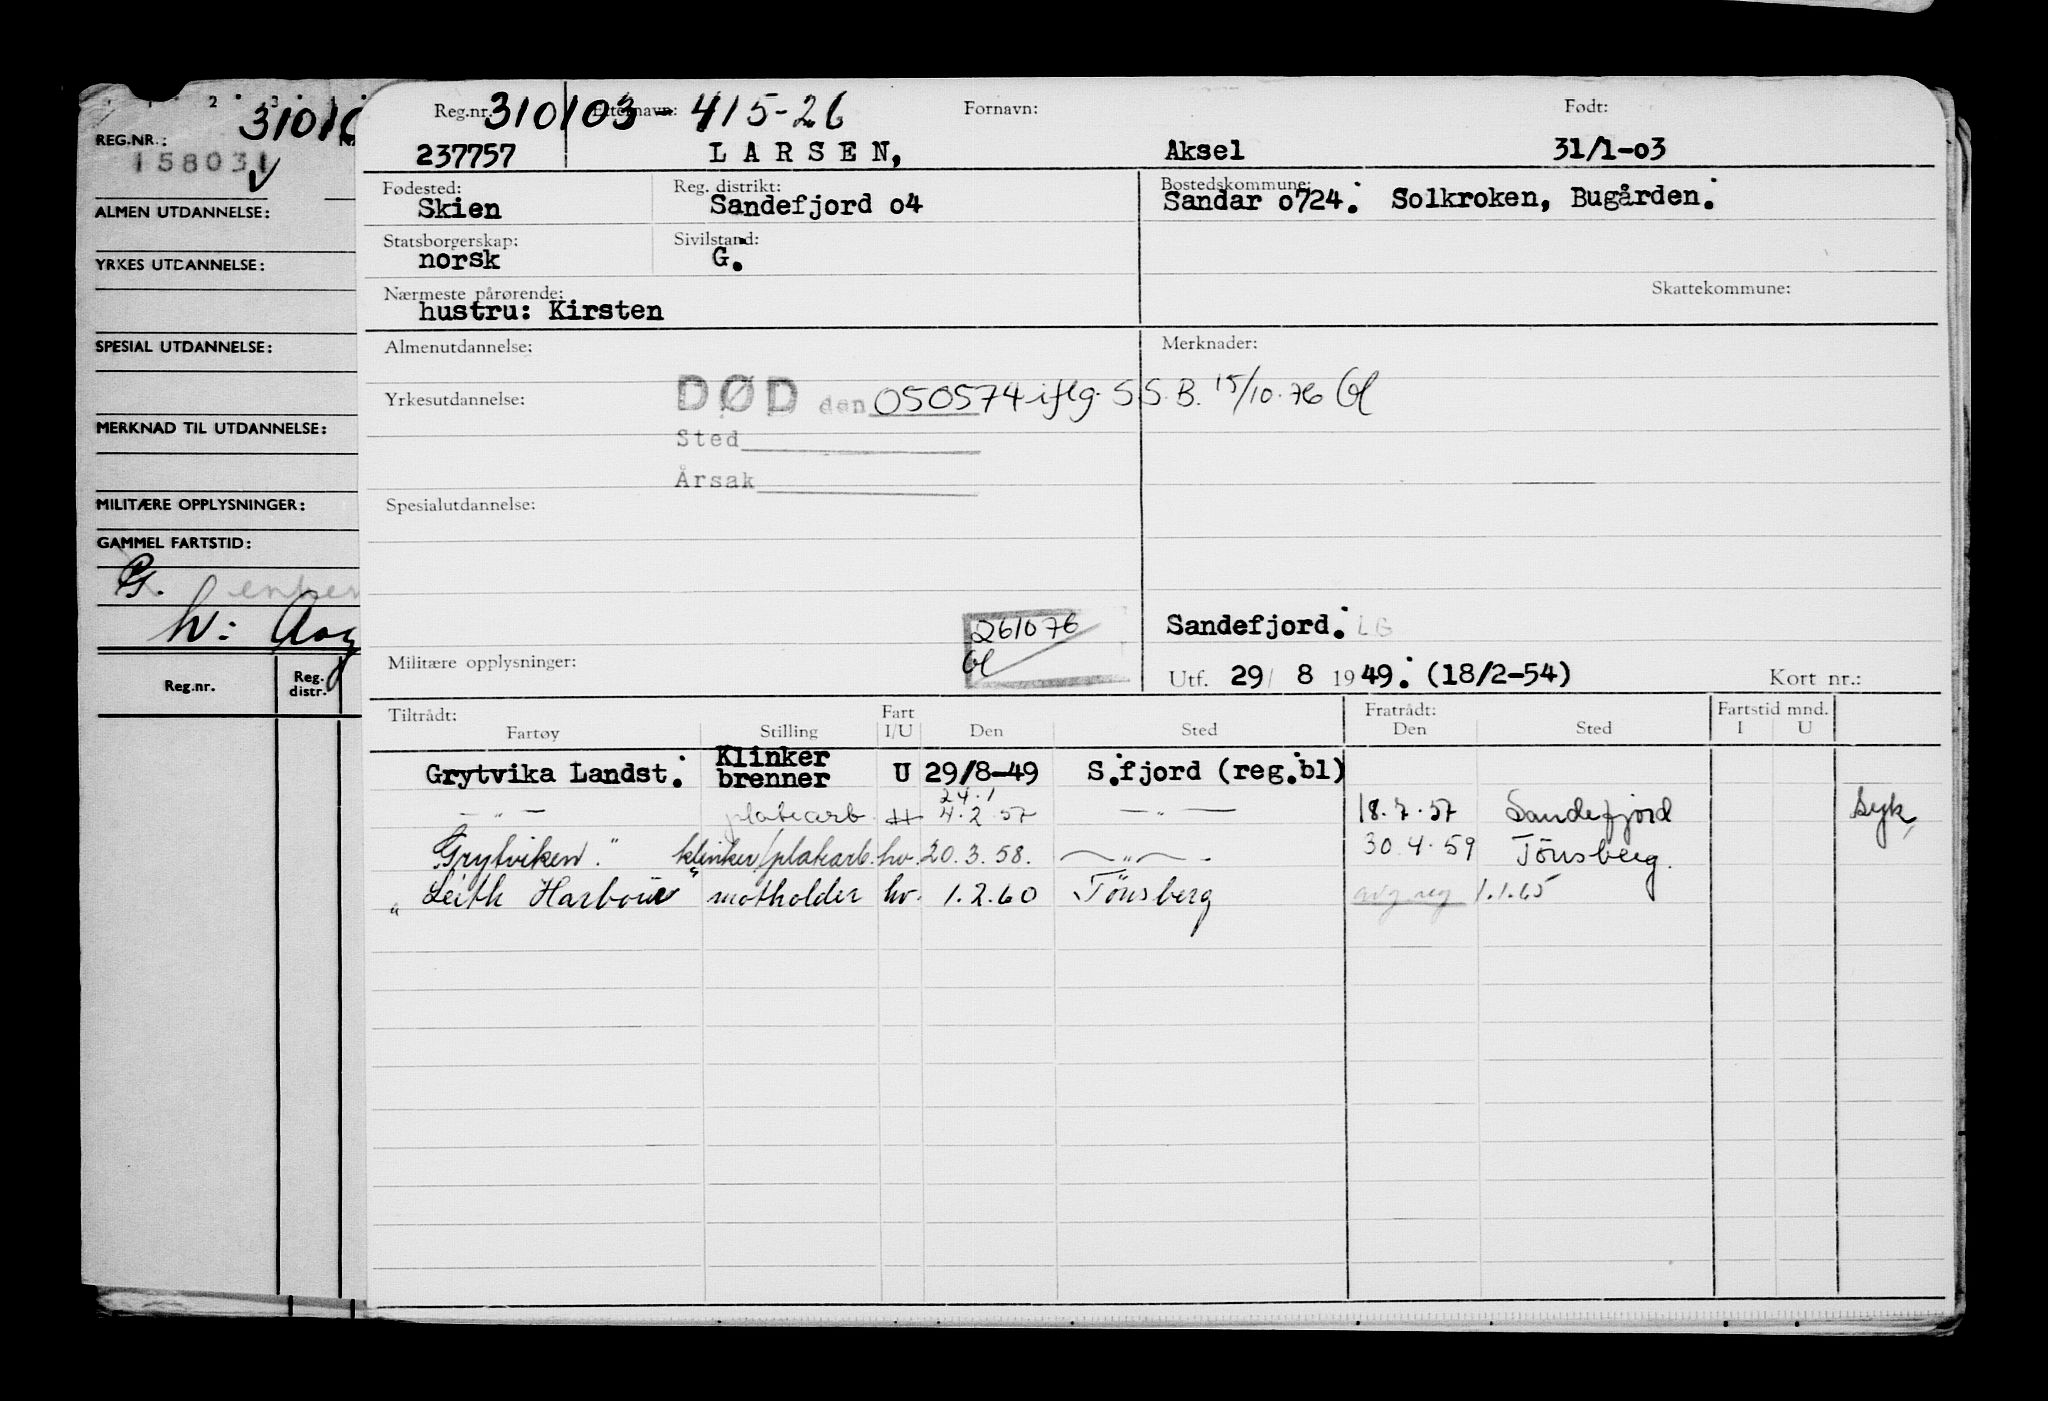 2 3
310 1
REG.NR.:
158031
ALMEN UTDANNELSE:
YRKES UTDANNELSE:
SPESIAL UTDANNELSE:
MERKNAD TIL UTDANNELSE:
MILITÆRE OPPLYSNINGER:
GAMMEL FARTSTID:
G. enker
h: Aag
Reg.nr. Reg. distr.
Reg.nr. 310103 415-26 Fornavn: Født:
237757 LARSEN, Aksel 31/1-03
Fødested: Reg. distrikt: Bostedskommune:
Skien Sandefjord o4 Sandar o724. Solkroken, Bugården.
Statsborgerskap: Sivilstand:
norsk G.
Nærmeste pårørende: Skattekommune:
hustru: Kirsten
Almenutdannelse: Merknader:
Yrkesutdannelse: DØD den 050574 iflg. S.S.B. 15/10.76
Sted
Årsak
Spesialutdannelse:
261076 Sandefjord. LG
Militære opplysninger: Utf. 29/ 8 1949. (18/2-54) Kort nr.:
Tiltrådt: Fart Fratrådt: Fartstid mnd.
Fartøy Stilling I/U Den Sted Den Sted I U
Grytvika Landst. Klinker brenner U 29/8-49 S.fjord (reg.bl)
24.1
— " — platearb. 4.2.57 — " — 18.7.57 Sandefjord syk
Grytviken " klinker/platearb. hv. 20.3.58. — " — 30.4.59 Tönsberg.
" Leith Harbour " motholder hv. 1.2.60 Tönsberg avg.reg 1.1.65